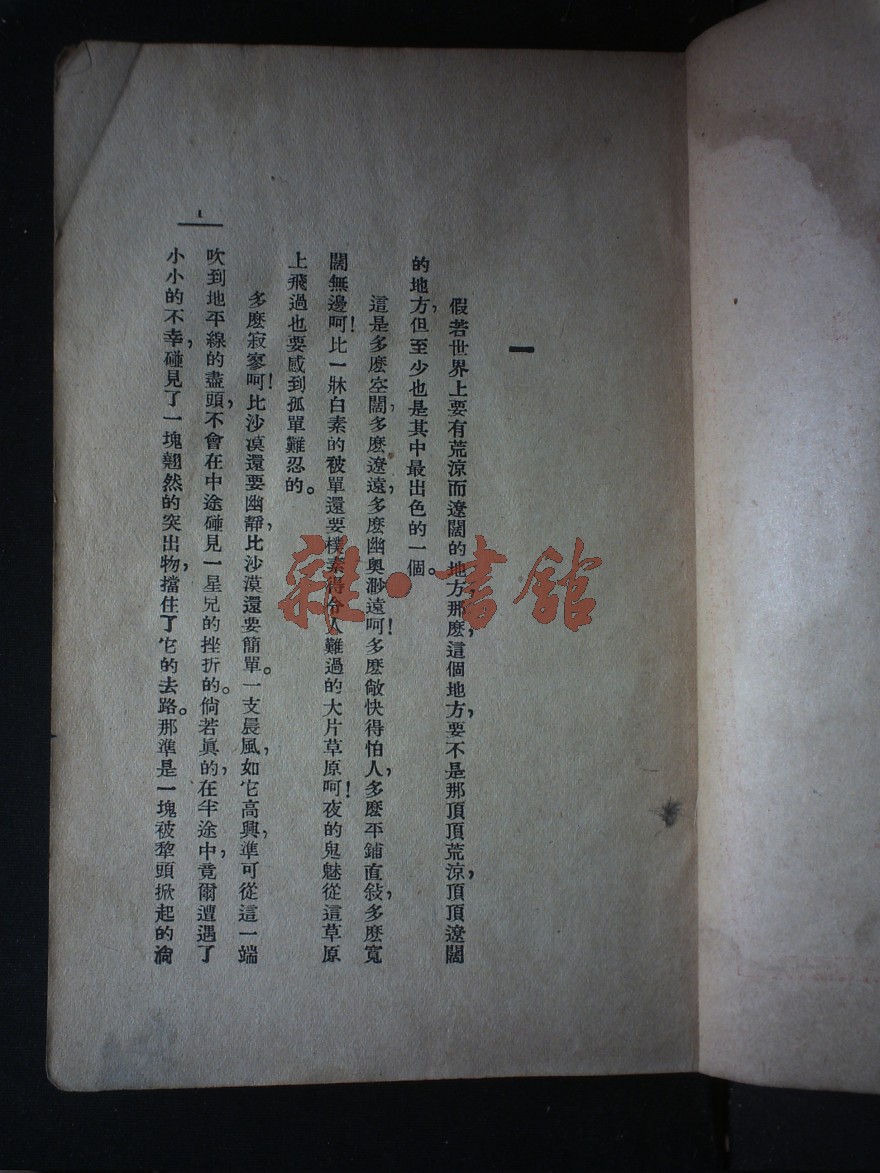 一
假若世界上要有荒涼而遼闊的地方，那麽，這個地方，要不是那頂頂荒涼，頂頂遼闊
的地方，但至少也是其中最出色的一個。
這是多麽空闊，多麽遼遠，多麽幽奧渺遠呵！多麽敞快得怕人，多麽平鋪直敍，多麽寬
闊無邊呵！比一牀白素的被單還要樸素得令人難過的大片草原呵！夜的鬼魅從這草原
上飛過也要感到孤單難忍的。
多麽寂寥呵！比沙漠還要幽靜，比沙漠還要簡單。一支晨風，如它高興，準可從這一端
吹到地平線的盡頭，不會在中途碰見一星兒的挫折的。倘若眞的，在半途中，竟爾遭遇了
小小的不幸，碰見了一塊翹然的突出物，擋住了它的去路。那準是一塊被犂頭掀起的淌
1
雜·書館